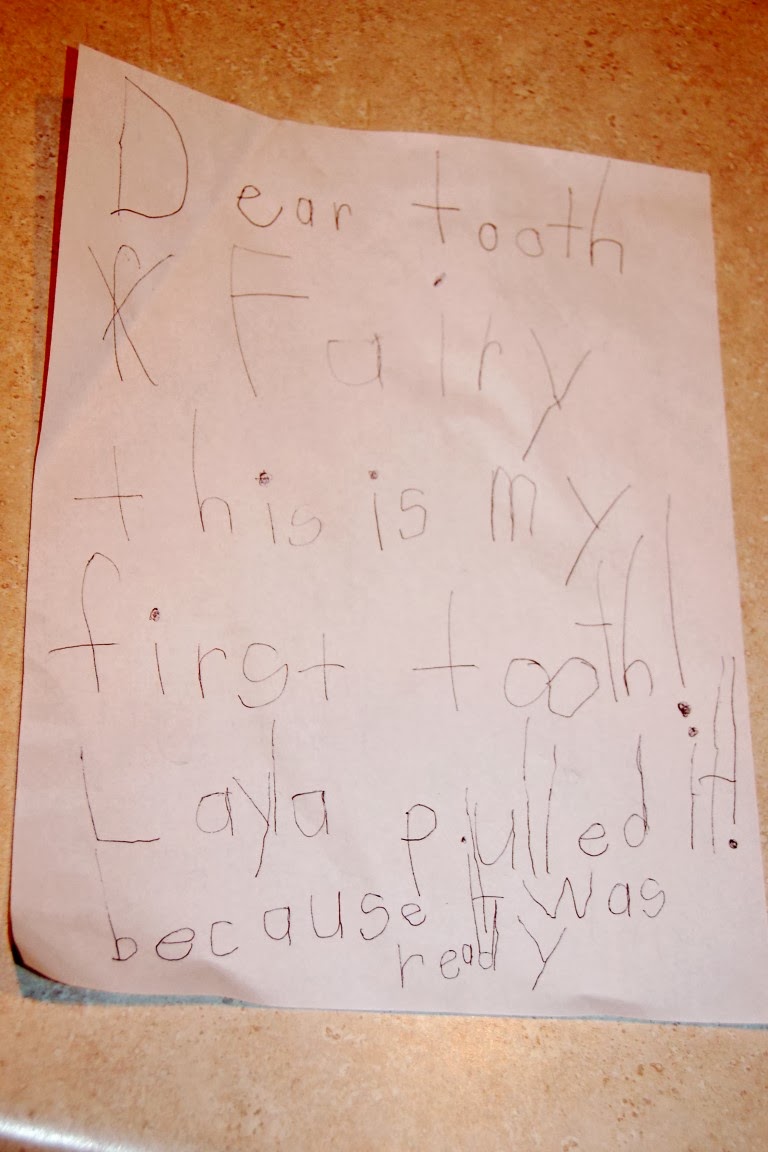 Dear tooth
Fairy
this is my
first tooth!
Layla pulled it!
because it was
ready